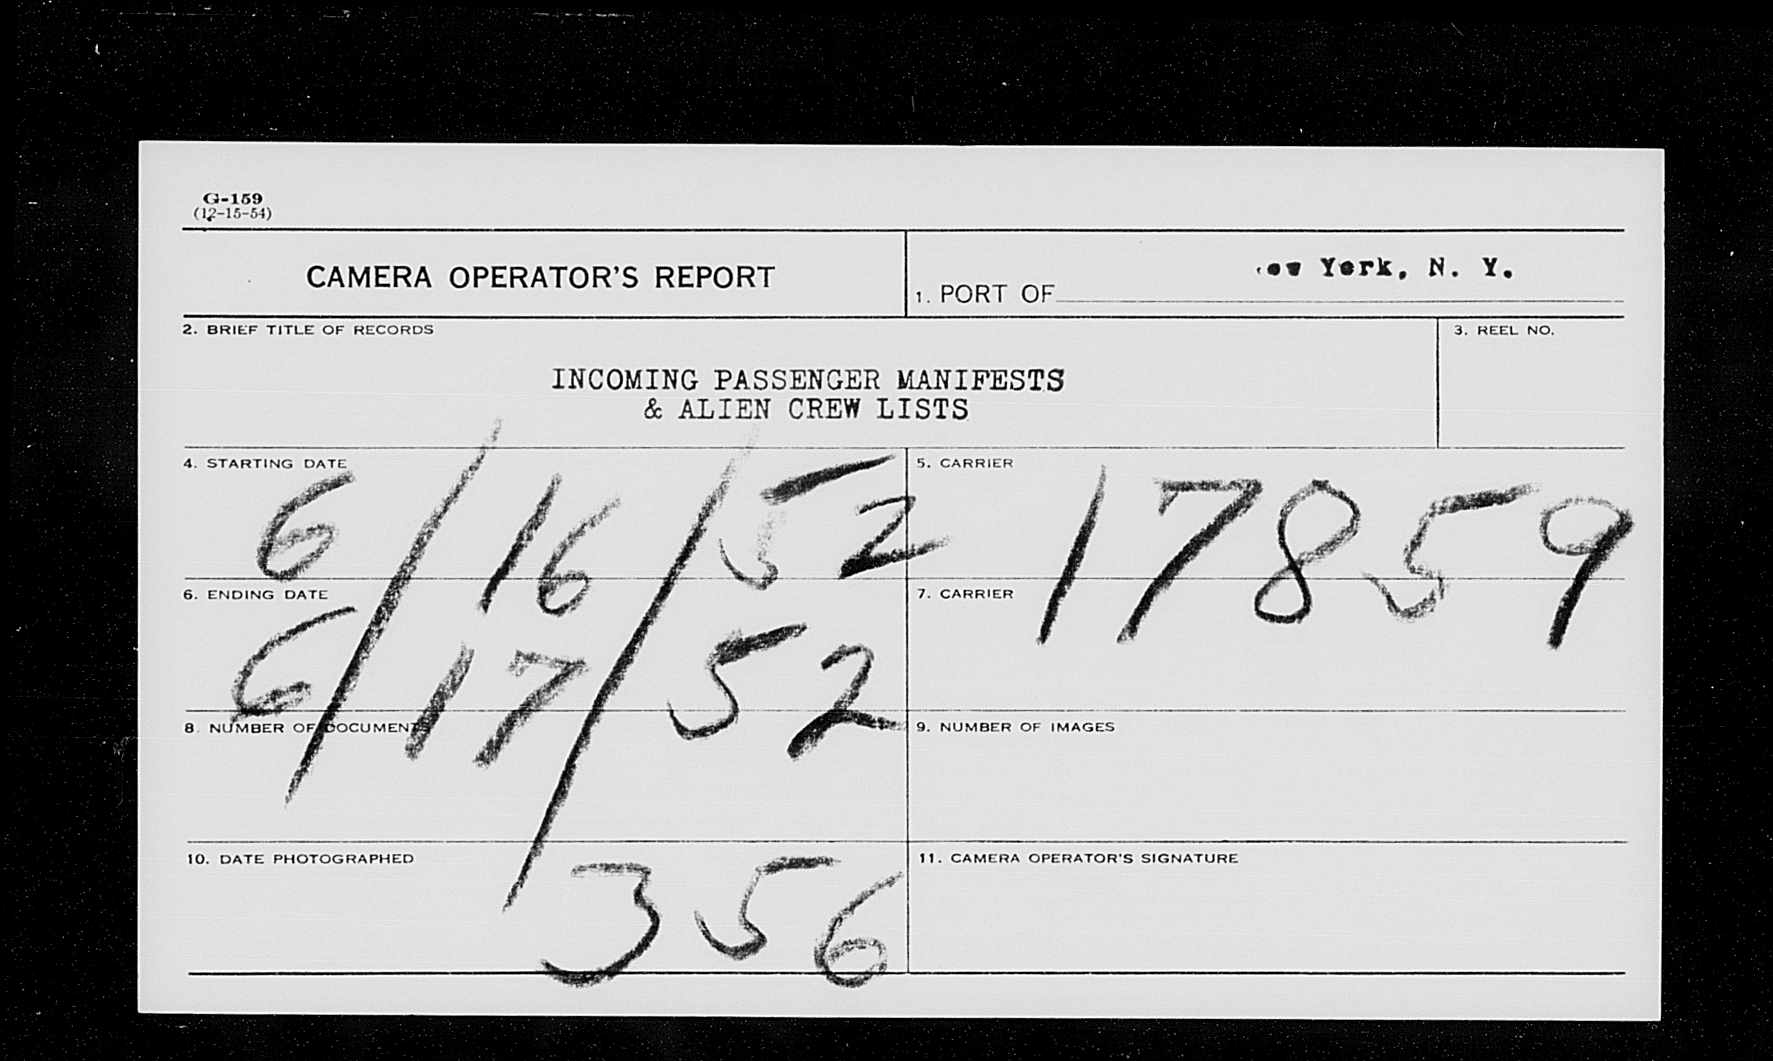 G-159
(12-15-54)
CAMERA OPERATOR'S REPORT
1. PORT OF ew York, N. Y.
2. BRIEF TITLE OF RECORDS
3. REEL NO.
INCOMING PASSENGER MANIFESTS
& ALIEN CREW LISTS
4. STARTING DATE
6/16/52
5. CARRIER
17859
6. ENDING DATE
6/17/52
7. CARRIER
8. NUMBER OF DOCUMENTS
9. NUMBER OF IMAGES
10. DATE PHOTOGRAPHED
356
11. CAMERA OPERATOR'S SIGNATURE